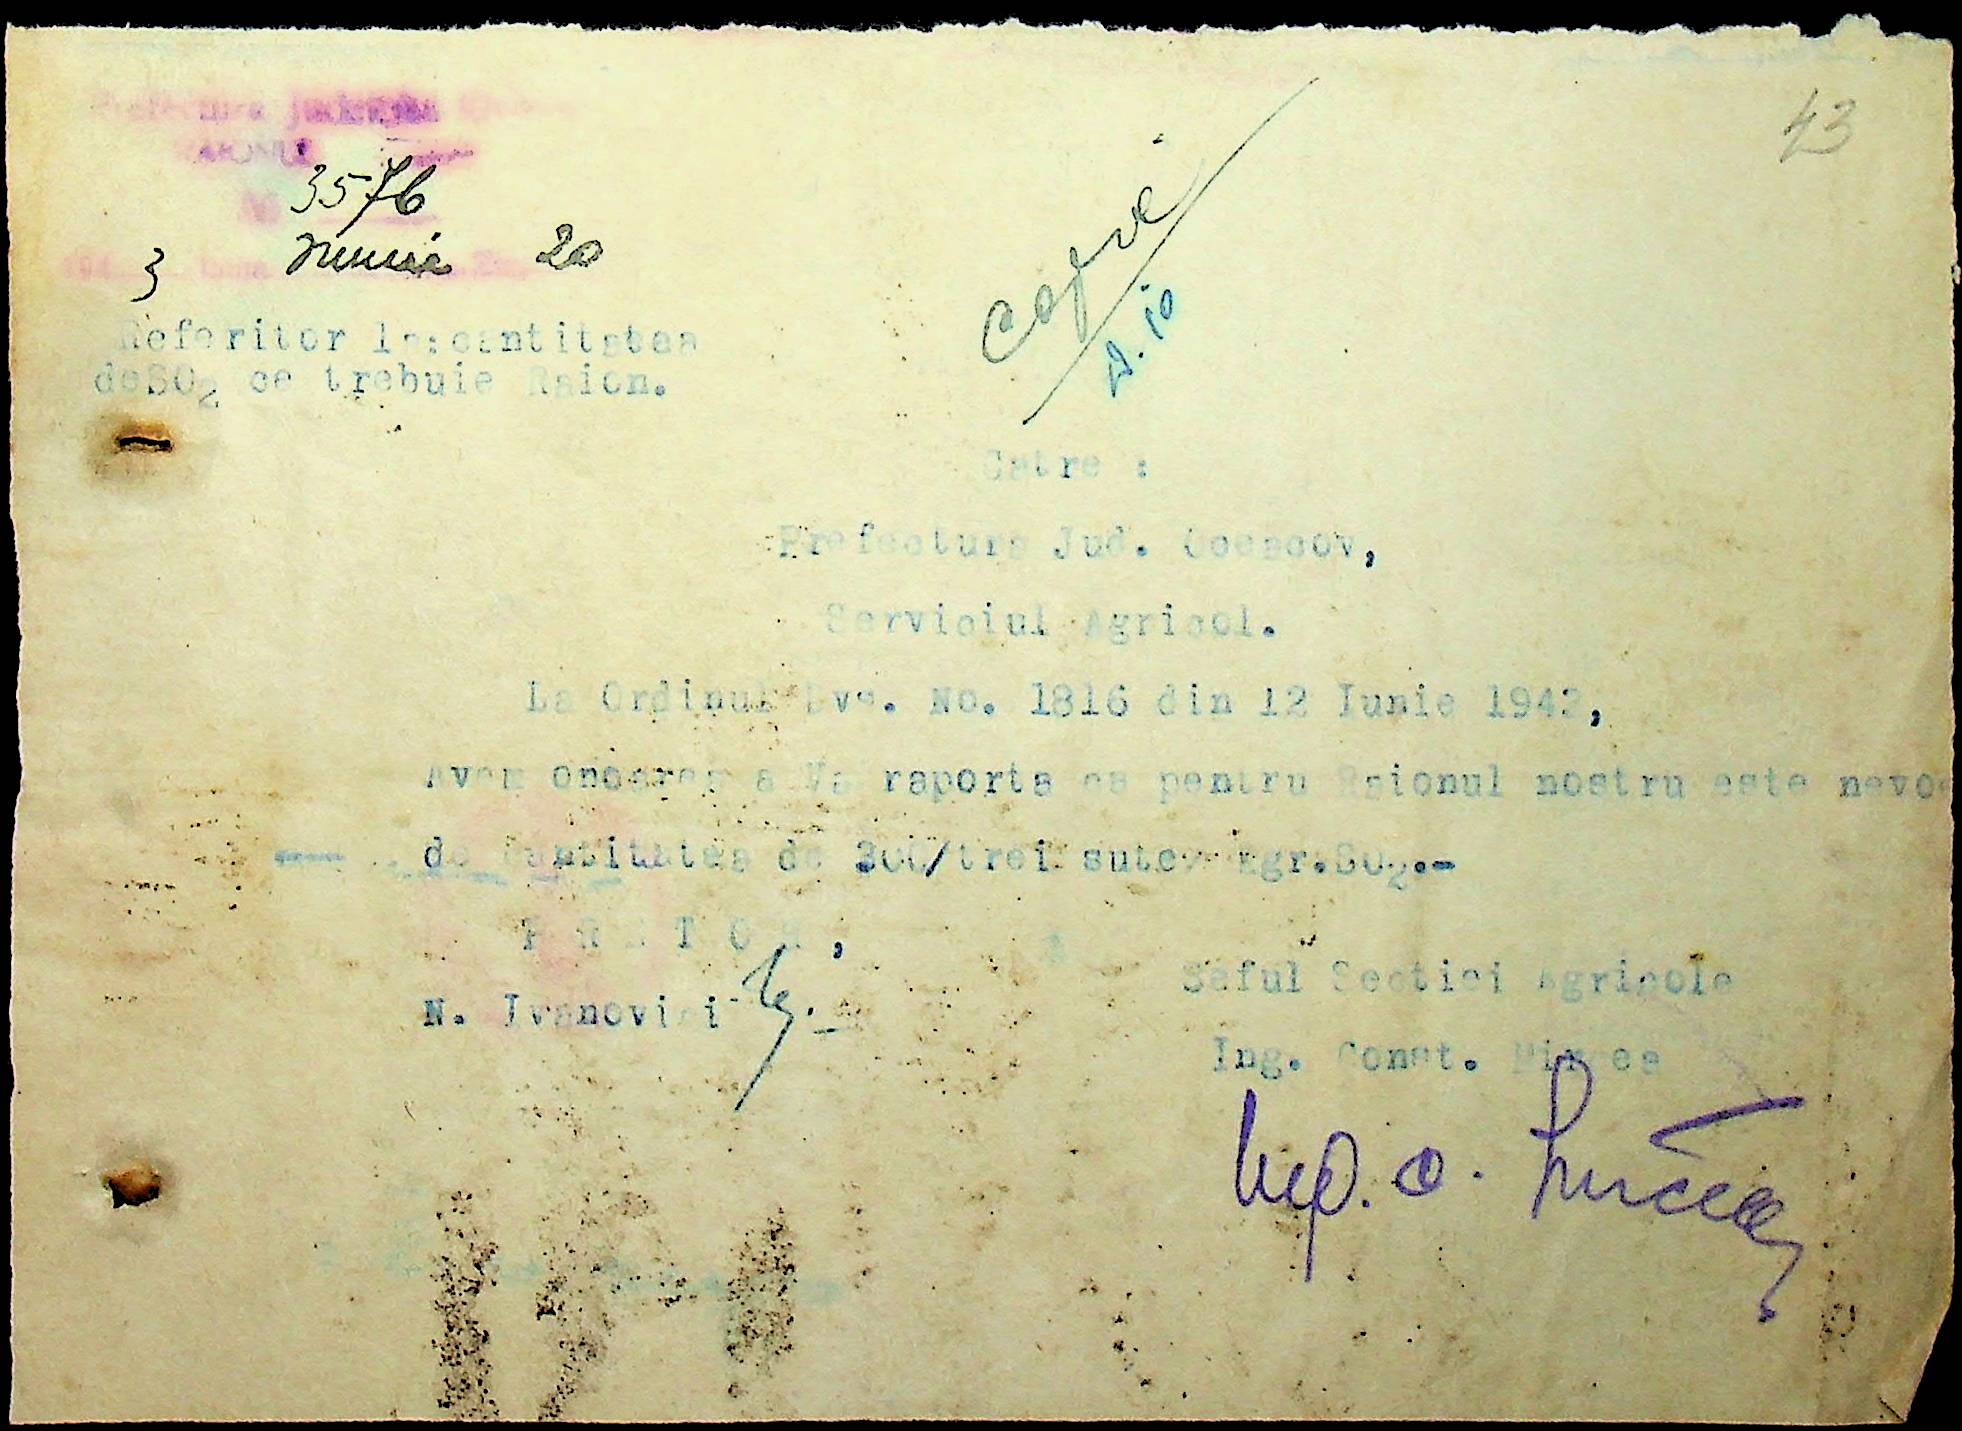 43
Prefectura județului
RAIONUL
No 3576
194 3 Luna Iunie 20
Referitor la:cantitatea
deSO2 ce trebuie Raion.
Copie
Catre :
Prefectura Jud. Oceacov,
Serviciul Agricol.
La Ordinul Dvs. No. 1816 din 12 Iunie 1943,
Avem onoarea a Va raporta ca pentru Raionul nostru este nevoe
de cantitatea de 300/trei sute/ kgr.SO2.-
P R E T O R ,
N. Ivanovici
Seful Sectiei Agricole
Ing. Const. Mircea
Ing. C. Mircea